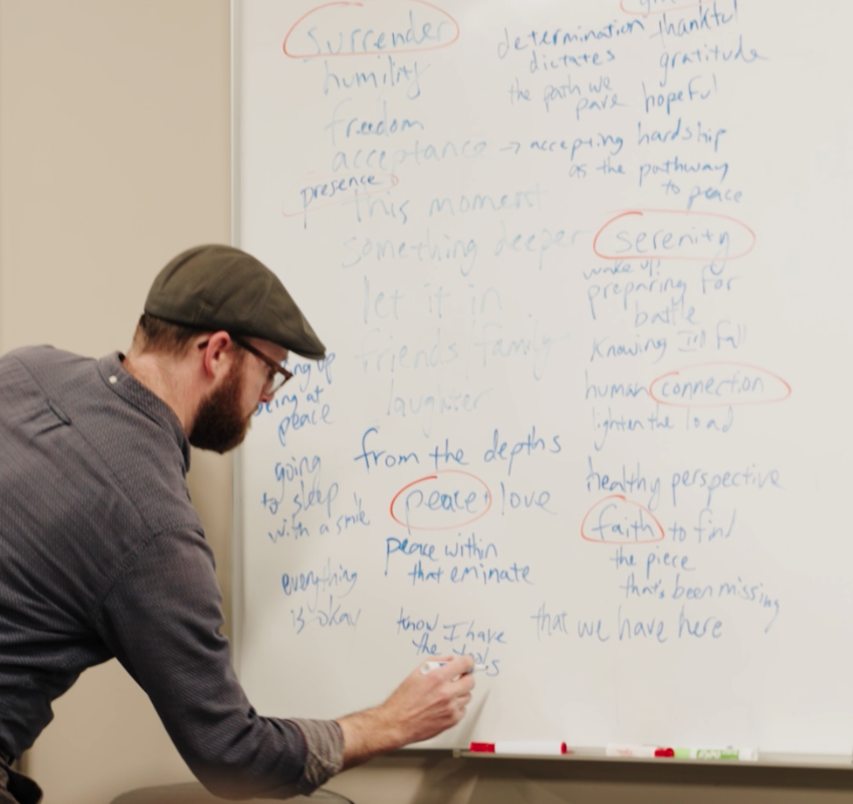 surrender
humility
freedom
acceptance → accepting hardship
as the pathway
to peace
presence
this moment
something deeper
let it in
friends family
laughter
from the depths
peace love
peace within
that eminate
know I have
the tools
being at
peace
going
to sleep
with a smile
everything
is okay
determination
dictates
the path we
pave
thankful
gratitude
hopeful
serenity
wake up!
preparing for
battle
knowing I'll fall
human connection
lighten the load
healthy perspective
faith to find
the piece
that's been missing
that we have here